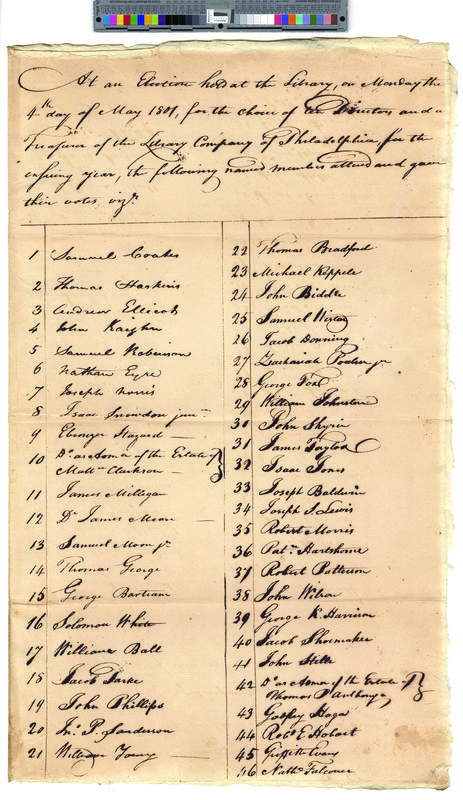 At an Election held at the Library, on Monday the
4th day of May 1801, for the choice of ten Directors and a
Treasurer of the Library Company of Philadelphia for the
ensuing year, the following named members attend and gave
their votes, vizt.
1 Samuel Coates
2 Thomas Haskins
3 Andrew Ellicott
4 John Kaighn
5 Samuel Robinson
6 Nathan Eyre
7 Joseph Norris
8 Isaac Snowdon junr
9 Ebenezer Hazard
10 Do as Asmor of the Estate of
Mattw Clarkson
11 James Milligan
12 Dr James Mease
13 Samuel Moon jr
14 Thomas George
15 George Bartram
16 Solomon White
17 William Ball
18 Jacob Parke
19 John Phillips
20 Jno. P. Sanderson
21 William Young
22 Thomas Bradford
23 Michael Keppele
24 John Biddle
25 Samuel Wistar
26 Jacob Downing
27 Zachariah Poulson jr
28 George Fox
29 William Johnston
30 John Skyrin
31 James Taylor
32 Isaac Jones
33 Joseph Baldwin
34 Joseph S. Lewis
35 Robert Morris
36 Patn. Hartshorne
37 Robert Patterson
38 John Wilson
39 George K Harrison
40 Jacob Shoemaker
41 John Hill
42 Do as Asmor of the Estate of
Thomas P Anthony
43 Godfrey Haga
44 Robt E Hobart
45 Griffith Evans
46 Nathl Falconer